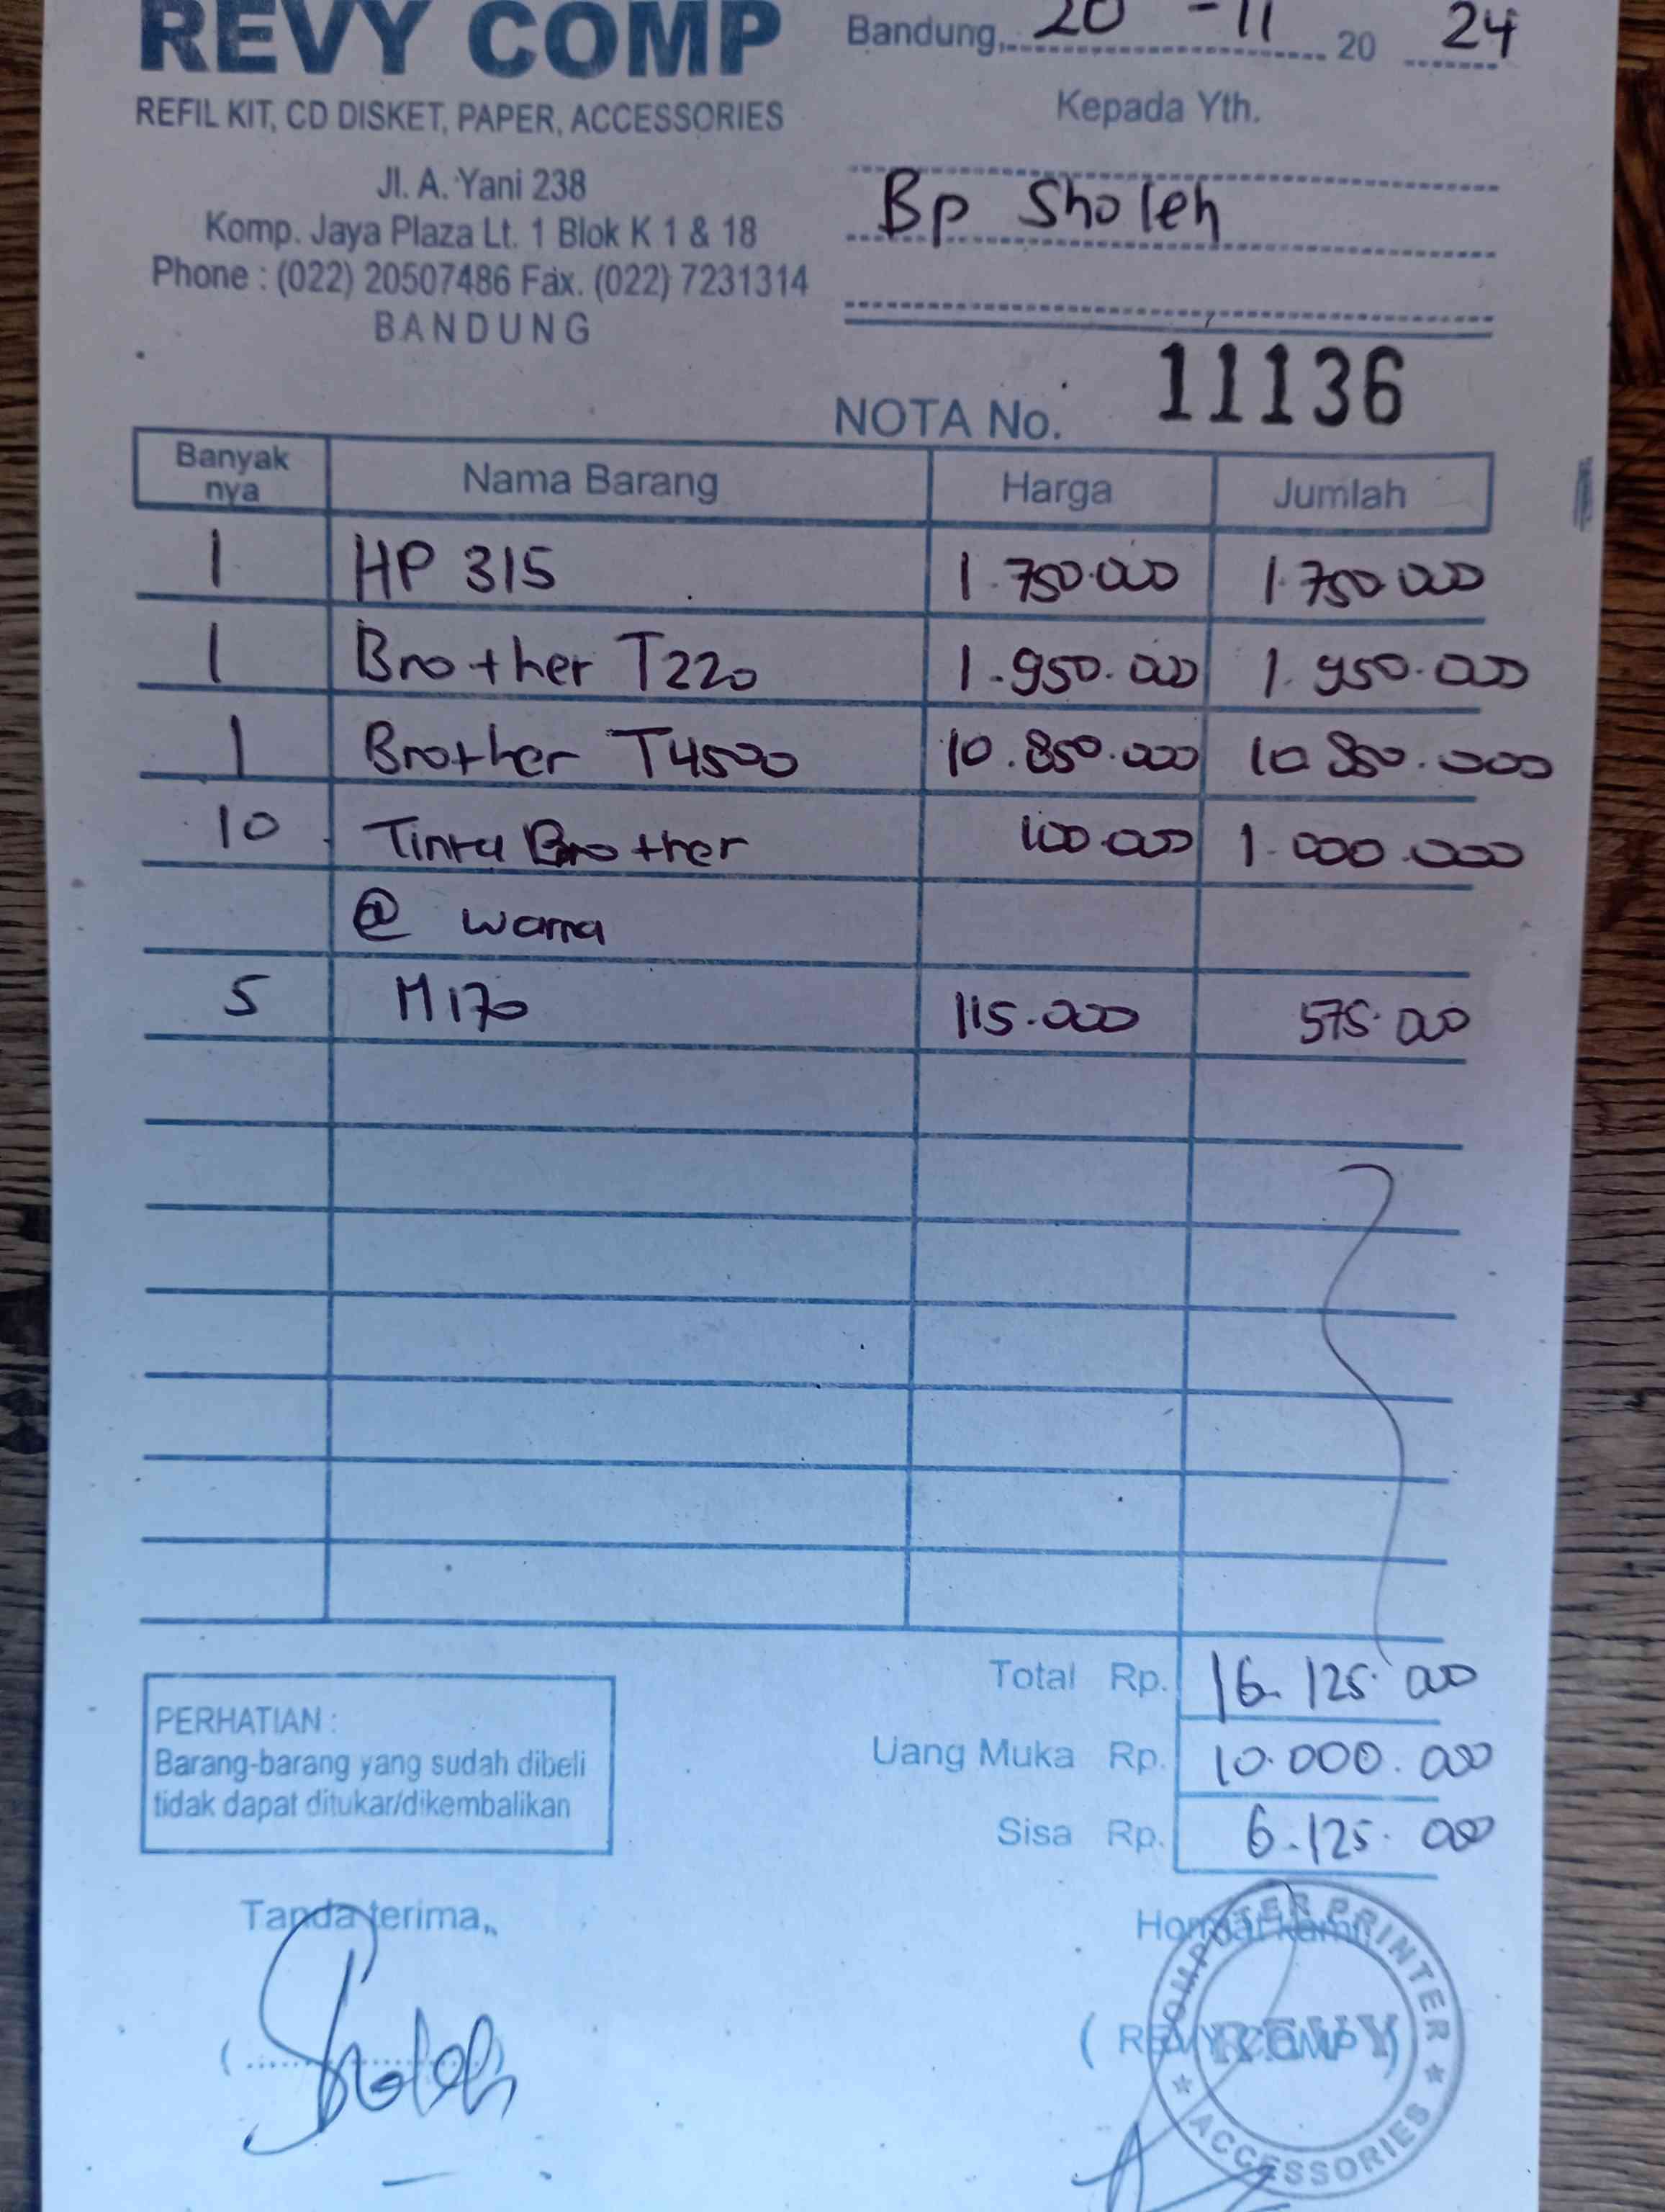 REVY COMP
REFIL KIT, CD DISKET, PAPER, ACCESSORIES
Jl. A. Yani 238
Komp. Jaya Plaza Lt. 1 Blok K 1 & 18
Phone : (022) 20507486 Fax. (022) 7231314
BANDUNG
Bandung, 20 - 11 20 24
Kepada Yth.
Bp Sholeh
NOTA No. 11136
Banyak nya Nama Barang Harga Jumlah
1 HP 315 1.750.000 1.750.000
1 Brother T220 1.950.000 1.950.000
1 Brother T4500 10.850.000 10.850.000
10 Tinta Brother 100.000 1.000.000
@ warna
5 M170 115.000 575.000
Total Rp. 16.125.000
Uang Muka Rp. 10.000.000
Sisa Rp. 6.125.000
PERHATIAN :
Barang-barang yang sudah dibeli
tidak dapat ditukar/dikembalikan
Tanda terima,
Sholeh
Hormat kami,
( REVY COMP )
COMPUTER PRINTER
REVY
ACCESSORIES